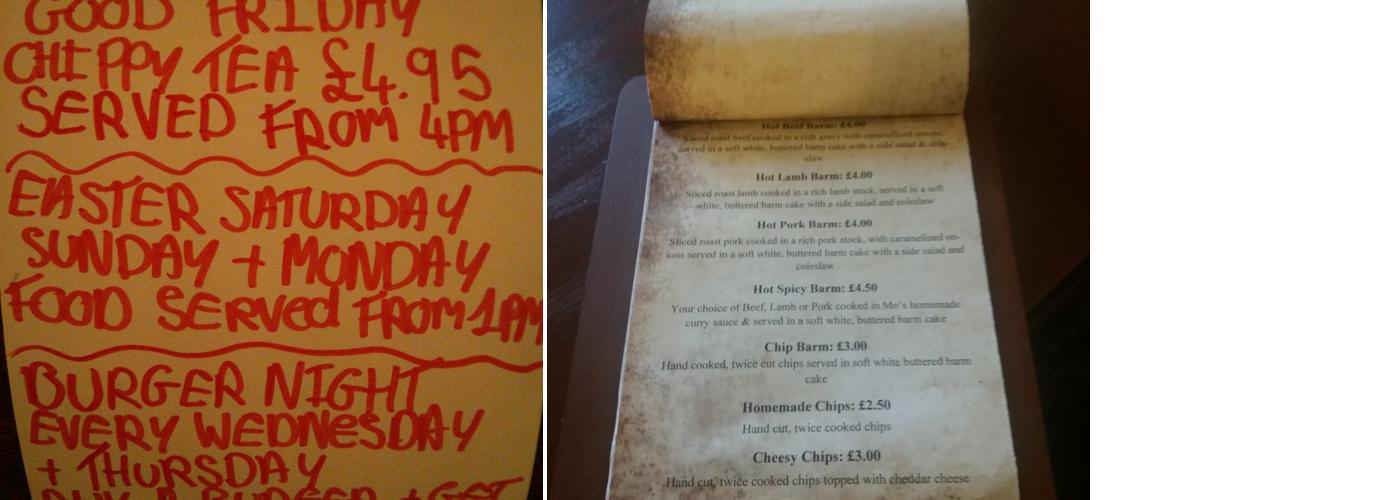 GOOD FRIDAY
CHIPPY TEA £4.95
SERVED FROM 4PM
EASTER SATURDAY
SUNDAY + MONDAY
FOOD SERVED FROM 1PM
BURGER NIGHT
EVERY WEDNESDAY
+ THURSDAY
BUY A BURGER + GET
Hot Beef Barm: £4.00
Sliced roast beef cooked in a rich gravy with caramelized onions,
served in a soft white, buttered barm cake with a side salad & cole-
slaw
Hot Lamb Barm: £4.00
Sliced roast lamb cooked in a rich lamb stock, served in a soft
white, buttered barm cake with a side salad and coleslaw
Hot Pork Barm: £4.00
Sliced roast pork cooked in a rich pork stock, with caramelized on-
ions served in a soft white, buttered barm cake with a side salad and
coleslaw
Hot Spicy Barm: £4.50
Your choice of Beef, Lamb or Pork cooked in Mo's homemade
curry sauce & served in a soft white, buttered barm cake
Chip Barm: £3.00
Hand cooked, twice cut chips served in soft white buttered barm
cake
Homemade Chips: £2.50
Hand cut, twice cooked chips
Cheesy Chips: £3.00
Hand cut, twice cooked chips topped with cheddar cheese